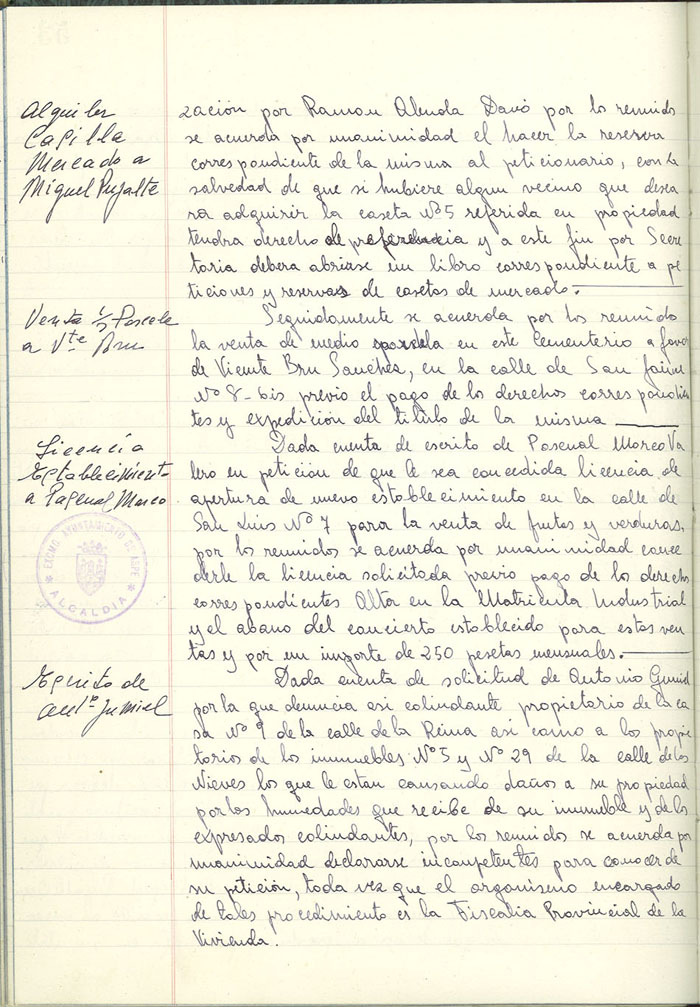 Alquiler
Casilla
Mercado a
Miguel Pujalte
zación por Ramon Abenola Davó por los reunidos
se acuerda por unanimidad el hacer la reserva
correspondiente de la misma al peticionario, con la
salvedad de que si hubiere algun vecino que desea
ra adquirir la caseta Nº 5 referida en propiedad
tendra derecho de preferencia y a este fin por Secre
taria debera abrirse un libro correspondiente a pe
ticiones y reservas de casetas de mercado.
Venta 1/2 Parcela
a Vte Bru
Seguidamente se acuerda por los reunido
la venta de medio parcela en este Cementerio a favor
de Vicente Bru Sanchez, en la calle de San Jaime
Nº 8-bis previo el pago de los derechos correspondien
tes y expedición del titulo de la misma
Licencia
Establecimiento
a Pascual Marco
Dada cuenta de escrito de Pascual Marco Va
lero en petición de que le sea concedida licencia de
apertura de nuevo establecimiento en la calle de
San Luis Nº 7 para la venta de frutas y verduras,
por los reunidos se acuerda por unanimidad conce
derle la licencia solicitada previo pago de los derechos
correspondientes Alta en la Matricula Industrial
y el abono del concierto establecido para estas ven
tas y por un importe de 250 pesetas mensuales.
EXCMO. AYUNTAMIENTO DE ASPE
ALCALDIA
Escrito de
Antº Jumiel
Dada cuenta de solicitud de Antonio
por la que denuncia asi colindante propietario de la ca
sa Nº 9 de la calle de la Reina asi como a los propie
tarios de los inmuebles Nº 5 y Nº 29 de la calle de las
Nieves los que le estan causando daños a su propiedad
por las humedades que recibe de su inmueble y de los
expresados colindantes, por los reunidos se acuerda por
unanimidad declararse incompetentes para conocer de
su petición, toda vez que el organismo encargado
de tales procedimiento es la Fiscalia Provincial de la
Vivienda.